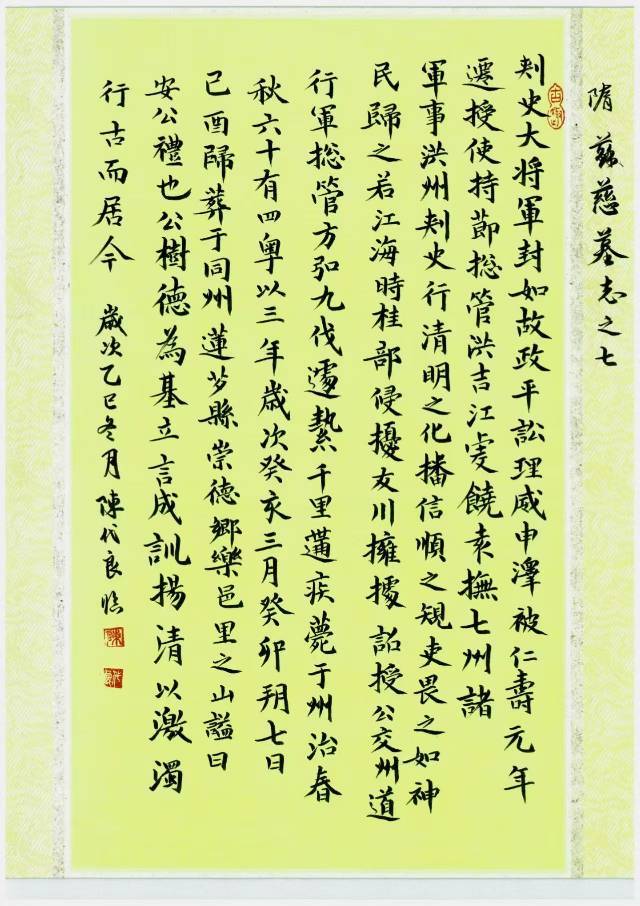 隋蘓慈墓志之七
刾史大将軍封如故政平訟理威申澤被仁壽元年
遷授使持節総管洪吉江虔饒袁撫七州諸
軍事洪州刾史行清明之化播信順之規吏畏之如神
民歸之若江海時桂部侵擾友川擁據詔授公交州道
行軍総管方弘九伐遽縶千里遘疾薨于州治春
秋六十有四粤以三年歳次癸亥三月癸卯朔七日
己酉歸葬于同州蓮芍縣崇德鄉樂邑里之山謚曰
安公禮也公樹德為基立言成訓揚清以激濁
行古而居今 歲次乙巳冬月陳代良臨